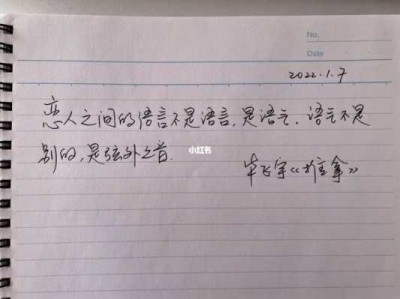 No.
Date
2022.1.7
恋人之间的语言不是语言,是语气.语气不是
别的,是弦外之音.
小红书
毕飞宇《推拿》